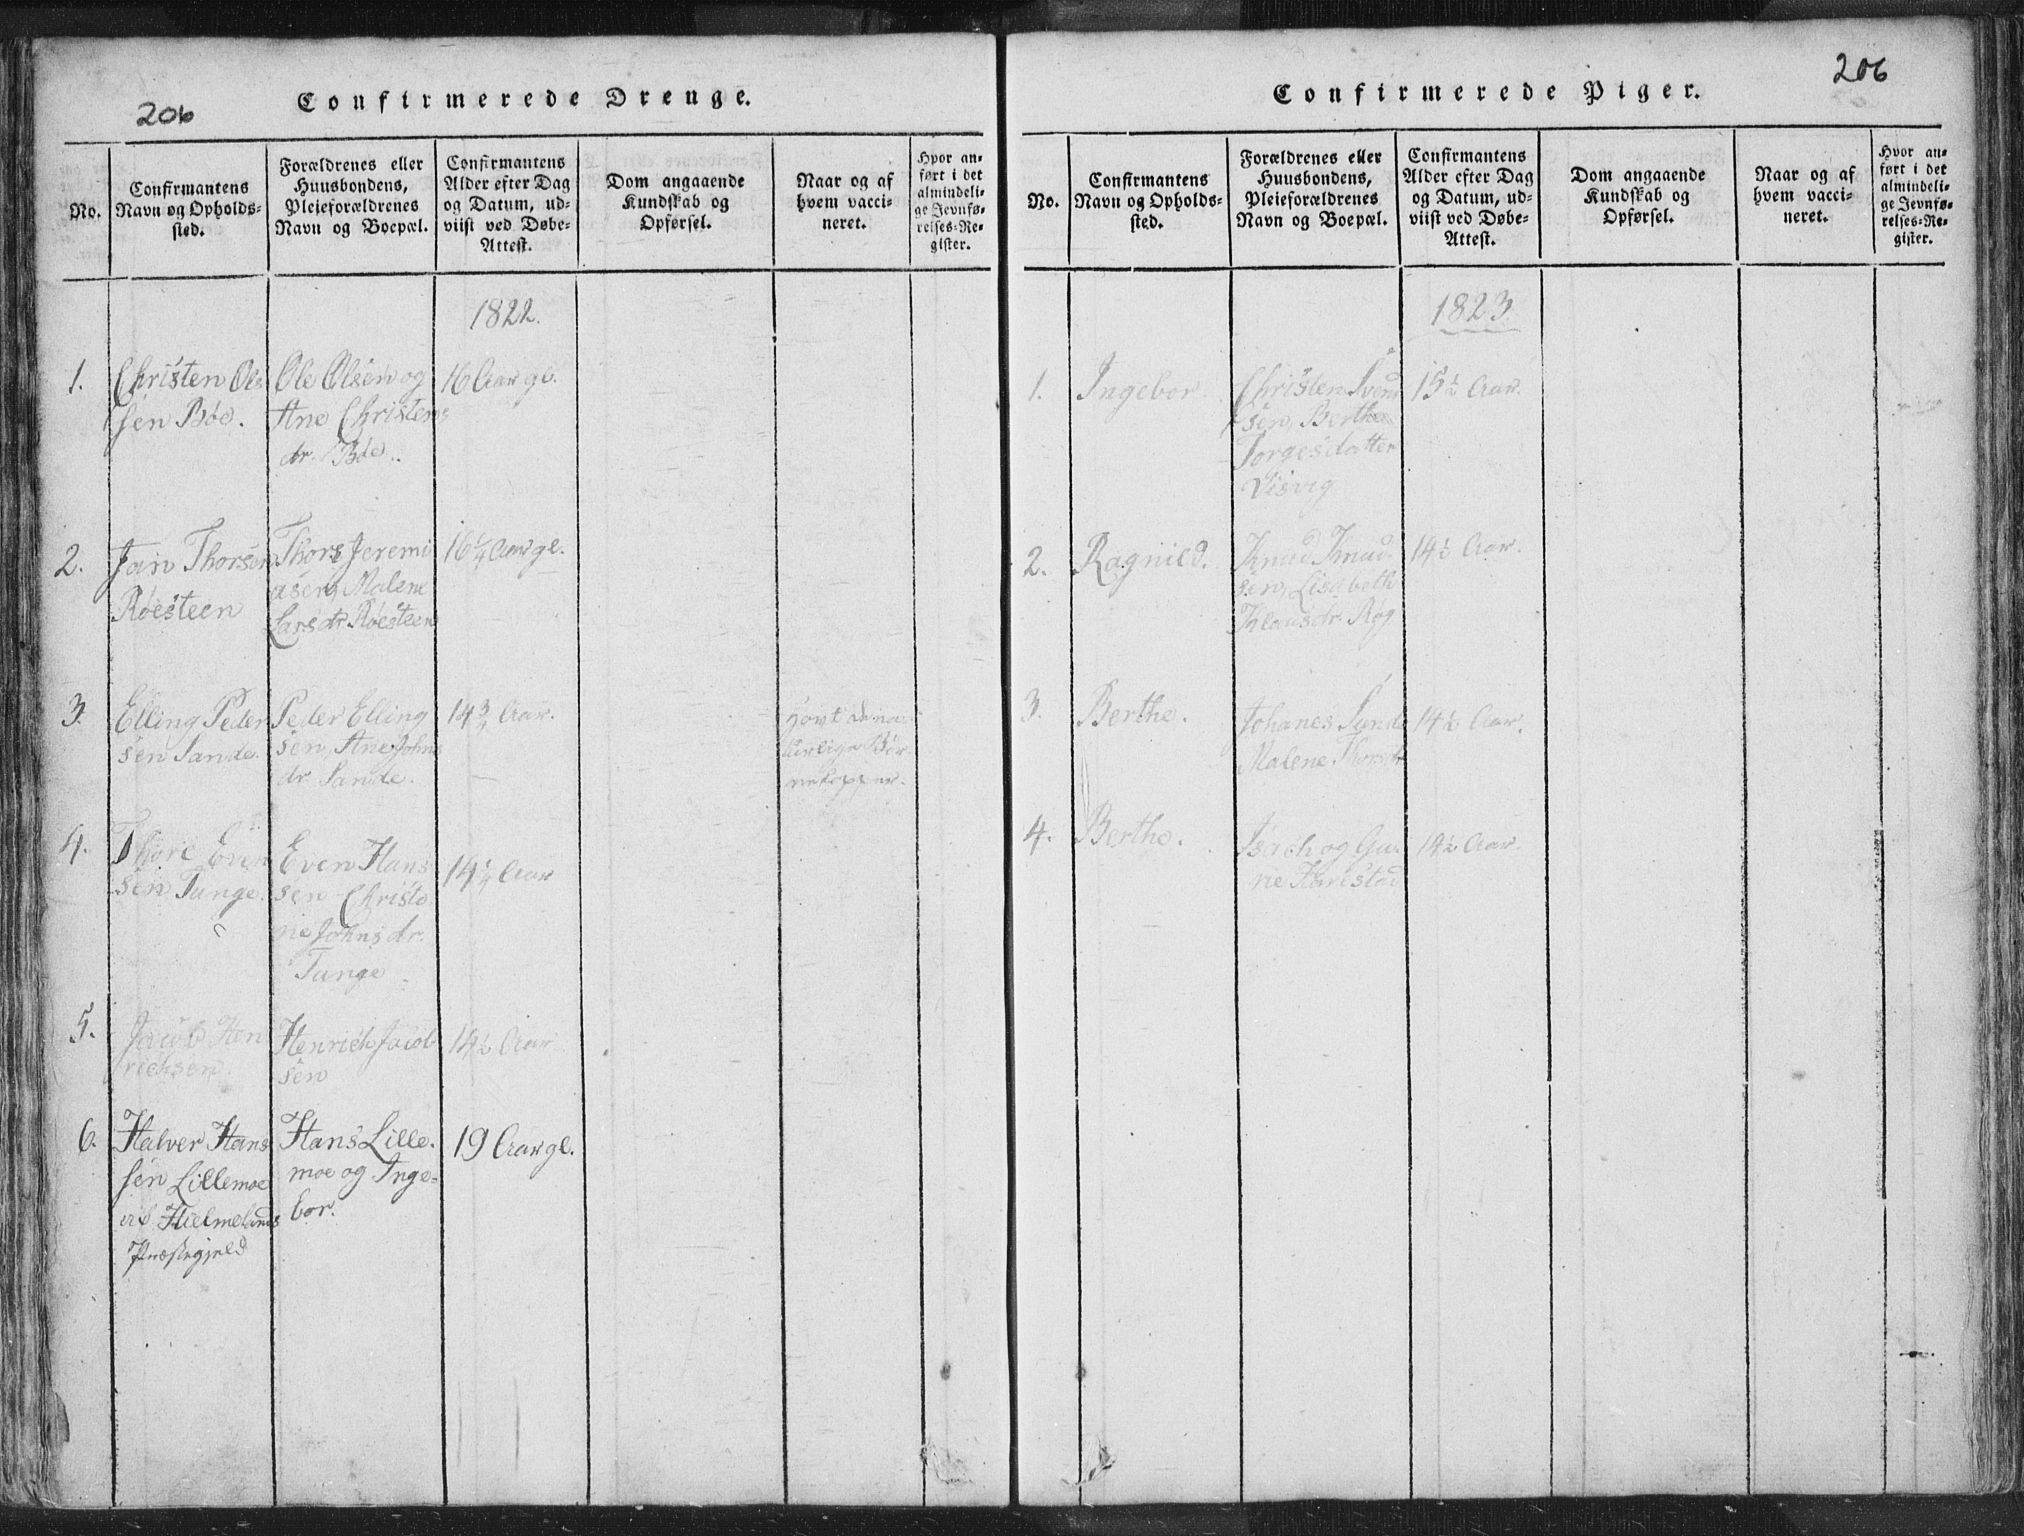 206
Confirmerede Drenge.
No.
Confirmantens
Navn og Opholds-
sted.
Forældrenes eller
Huusbondens,
Pleieforældrenes
Navn og Boepæl.
Confirmantens
Alder efter Dag
og Datum, ud-
viist ved Døbe-
Attest.
Dom angaaende
Kundskab og
Opførsel.
Naar og af
hvem vacci-
neret.
Hvor an-
ført i det
almindeli-
ge Jevnfø-
relses-Re-
gister.
1822.
1.
Christen Ol-
sen Bøe.
Ole Olsen og
Ane Christens
dr. Bøe.
16 Aar gl.
2.
Jan Thorsen
Røesteen
Thors Jeremi
asen, Malene
Larsdr Røesteen
16 1/4 Aar gl.
3.
Elling Peder
sen Sande.
Peder Elling
sen, Ane Johns
dr Sande.
14 3/4 Aar.
havt de na
turlige Bør
nekopper.
4.
Thore Even
sen Tunge.
Even Hans
sen Christi
ne Johnsdr.
Tunge
14 1/4 Aar
5.
Jacob Hen
richsen.
Henrich Jacob
sen
14 1/2 Aar
6.
Halver Hans
sen Lillemoe
af Hielmelands
Præstegjeld
Hans Lille-
moe og Inge-
bor.
19 Aar gl.
206
Confirmerede Piger.
No.
Confirmantens
Navn og Opholds-
sted.
Forældrenes eller
Huusbondens,
Pleieforældrenes
Navn og Boepæl.
Confirmantens
Alder efter Dag
og Datum, ud-
viist ved Døbe-
Attest.
Dom angaaende
Kundskab og
Opførsel.
Naar og af
hvem vacci-
neret.
Hvor an-
ført i det
almindeli-
ge Jevnfø-
relses-Re-
gister.
1823.
1.
Ingebor.
Christen Svend
sen, Berthe
Torgesdatter
Visvig
15 1/2 Aar.
2.
Ragnild.
Knud Knud
sen, Lisabeth
Klausdr. Røg
14 1/2 Aar.
3.
Berthe.
Johanes Sande
Malene Thorsdr
14 1/2 Aar.
4.
Berthe.
og Gu-
ne
14 1/2 Aar.